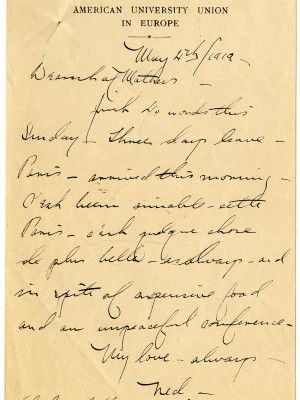 AMERICAN UNIVERSITY UNION
IN EUROPE
May 4th/1919 -
Dearest of Mothers -
Just two words this
Sunday - Three days leave -
Paris - arrived this morning -
C'est bien aimable - cette
Paris - c'est quelque chose
de plus belle - as always - and
in spite of expensive food
and an unpeaceful conference -
My love - always -
Ned -